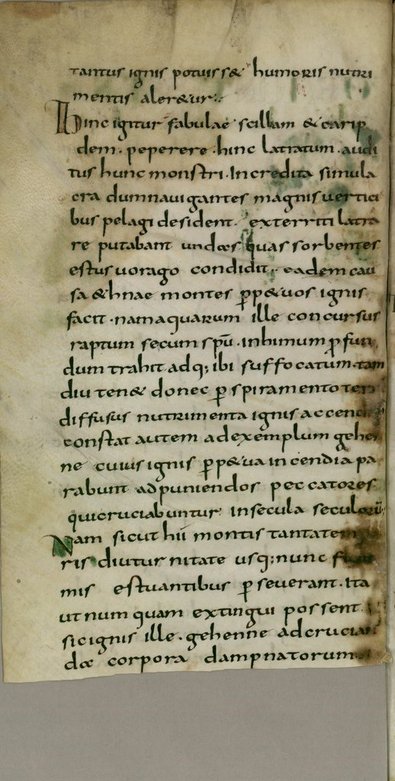 tantus ignis potuiss& humoris nutri
mentis aler&ur;
Hinc igitur fabulae scillam & carip
dem. peperere. hinc latratum. audi
tus hunc monstri. Incredita simula
cra dum nauigantes magnis uertici
bus pelagi desident. exterriti latra
re putabant undas quas sorbentes
estus uorago condidit. eadem cau
sa & hnae montes pp&uos ignis
facit. nam aquarum ille concursus
raptum secum spu. inhimum profun
dum trahit adq; ibi suffocatum. tam
diu ten& donec p spiramento terr
diffusus nutrimenta ignis accendit
constat autem ad exemplum gehen
ne cuius ignis pp&ua incendia pa
rabunt ad puniendos peccatores
qui cruciabuntur in secula seculorū
Nam sicut hii montis tantate
ris diuturnitate usq; nunc
mis estuantibus p seuerant. Ita
ut num quam extingui possent
sic ignis ille. gehenne ad crucian
da corpora dampnatorum